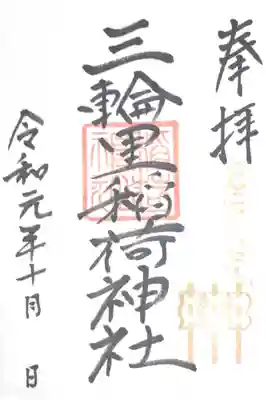 奉拝
三輪里稲荷神社
令和元年十月 日